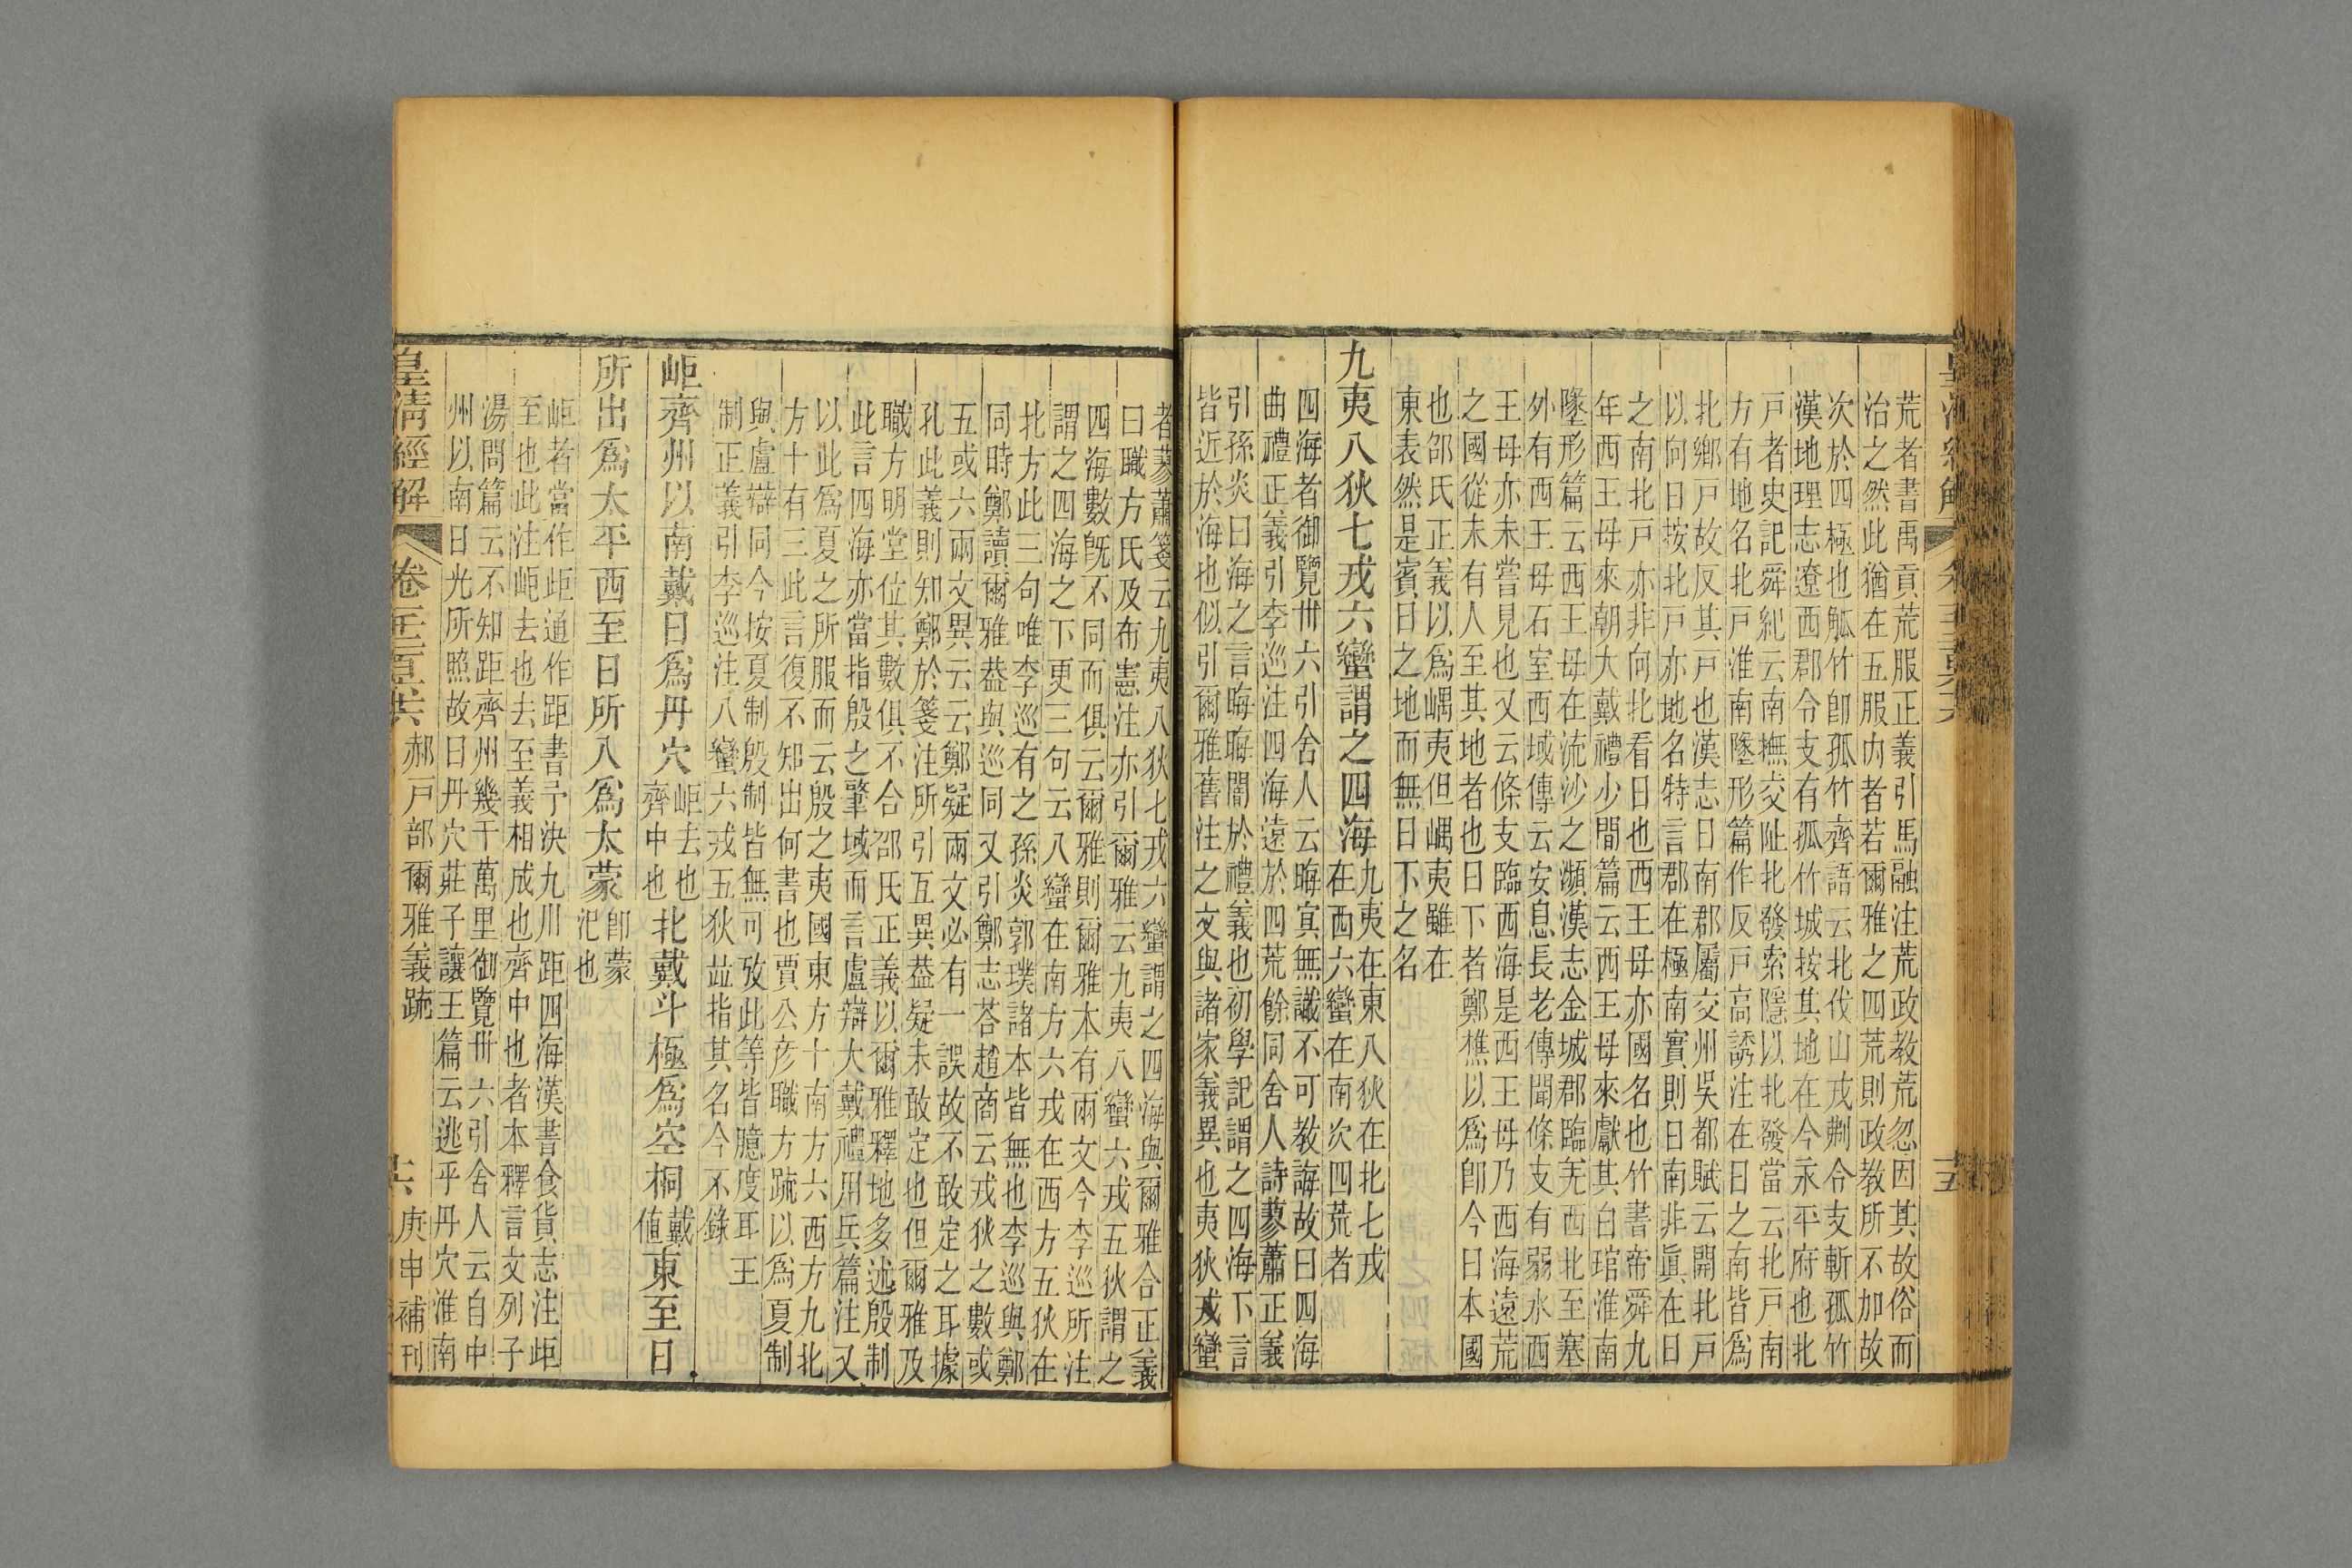 荒者書禹貢荒服正義引馬融注荒政教荒忽因其故俗而
治之然此猶在五服内者若爾雅之四荒則政教所不加故
次於四極也觚竹卽孤竹齊語云北伐山戎刜令支斬孤竹
漢地理志遼西郡令支有孤竹城按其地在今永平府也北
戸者史記舜紀云南撫交阯北發索隱以北發當云北戸南
方有地名北戸淮南墬形篇作反戸高誘注在日之南皆爲
北鄉戸故反其戸也漢志日南郡屬交州吳都賦云開北戸
以向日按北戸亦地名特言郡在極南實則日南非眞在日
之南北戸亦非向北看日也西王母亦國名也竹書帝舜九
年西王母來朝大戴禮少閒篇云西王母來獻其白琯淮南
墬形篇云西王母在流沙之瀕漢志金城郡臨羌西北至塞
外有西王母石室西域傳云安息長老傳聞條支有弱水西
王母亦未嘗見也又云條支臨西海是西王母乃西海遠荒
之國從未有人至其地者也日下者鄭樵以爲卽今日本國
也邵氏正義以爲嵎夷但嵎夷雖在
東表然是賓日之地而無日下之名
九夷八狄七戎六蠻謂之四海九夷在東八狄在北七戎
在西六蠻在南次四荒者
四海者御覽卅六引舍人云晦冥無識不可教誨故曰四海
曲禮正義引李巡注四海遠於四荒餘同舍人詩蓼蕭正義
引孫炎曰海之言晦晦闇於禮義也初學記謂之四海下言
皆近於海也似引爾雅舊注之文與諸家義異也夷狄戎蠻
者蓼蕭箋云九夷八狄七戎六蠻謂之四海與爾雅合正義
曰職方氏及布憲注亦引爾雅云九夷八蠻六戎五狄謂之
四海數旣不同而俱云爾雅則爾雅本有兩文今李巡所注
謂之四海之下更三句云八蠻在南方六戎在西方五狄在
北方此三句唯李巡有之孫炎郭璞諸本皆無也李巡與鄭
同時鄭讀爾雅葢與巡同又引鄭志荅趙商云戎狄之數或
五或六兩文異云云鄭疑兩文必有一誤故不敢定之耳據
孔此義則知鄭於箋注所引互異葢疑未敢定也但爾雅及
職方明堂位其數俱不合邵氏正義以爾雅釋地多述殷制
此言四海亦當指殷之肇域而言盧辯大戴禮用兵篇注又
以此爲夏之所服而云殷之夷國東方十南方六西方九北
方十有三此言復不知出何書也賈公彦職方疏以爲夏制
與盧辯同今按夏制殷制皆無可攷此等皆臆度耳王
制正義引李巡注八蠻六戎五狄竝指其名今不錄
岠齊州以南戴日爲丹穴岠去也
齊中也北戴斗極爲空桐戴
値東至日
所出爲太平西至日所入爲太蒙卽蒙
汜也
岠者當作岠通作距書予決九川距四海漢書食貨志注岠
至也此注岠去也去至義相成也齊中也者本釋言文列子
湯問篇云不知距齊州幾千萬里御覽卅六引舍人云自中
州以南日光所照故曰丹穴莊子讓王篇云逃乎丹穴淮南
皇淸經解 卷千二百六十六 郝戸部爾雅義疏 十六 庚申補刊